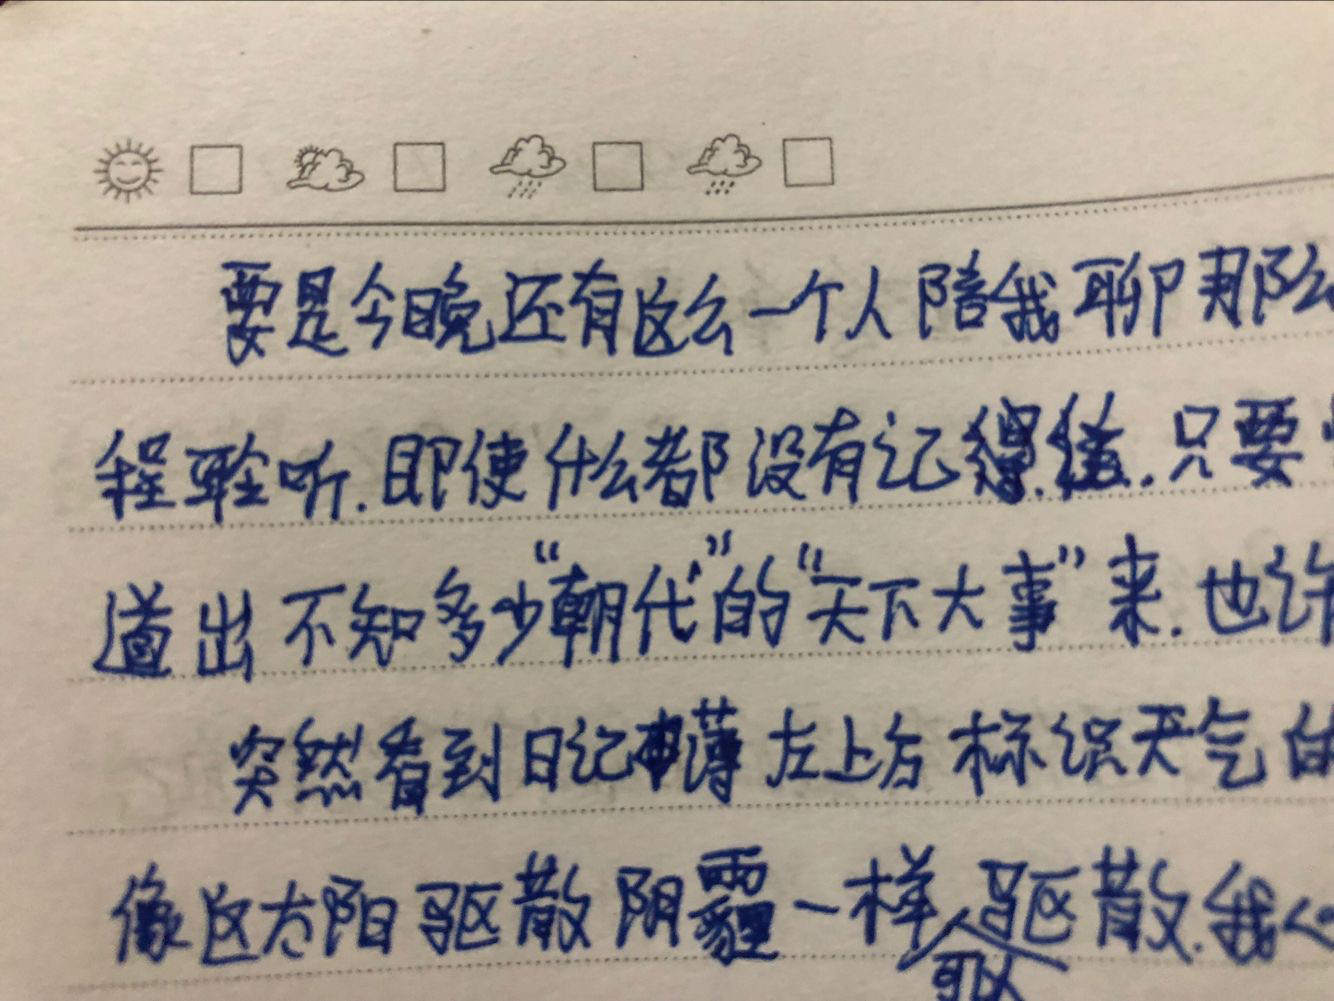 要是今晚还有这么一个人陪我聊那么
程 听.即使什么都没有记得.只要
道出不知多少“朝代”的“天下大事”来.也许
突然看到日记薄左上方标识天气的
像这太阳驱散阴霾一样驱散.我心